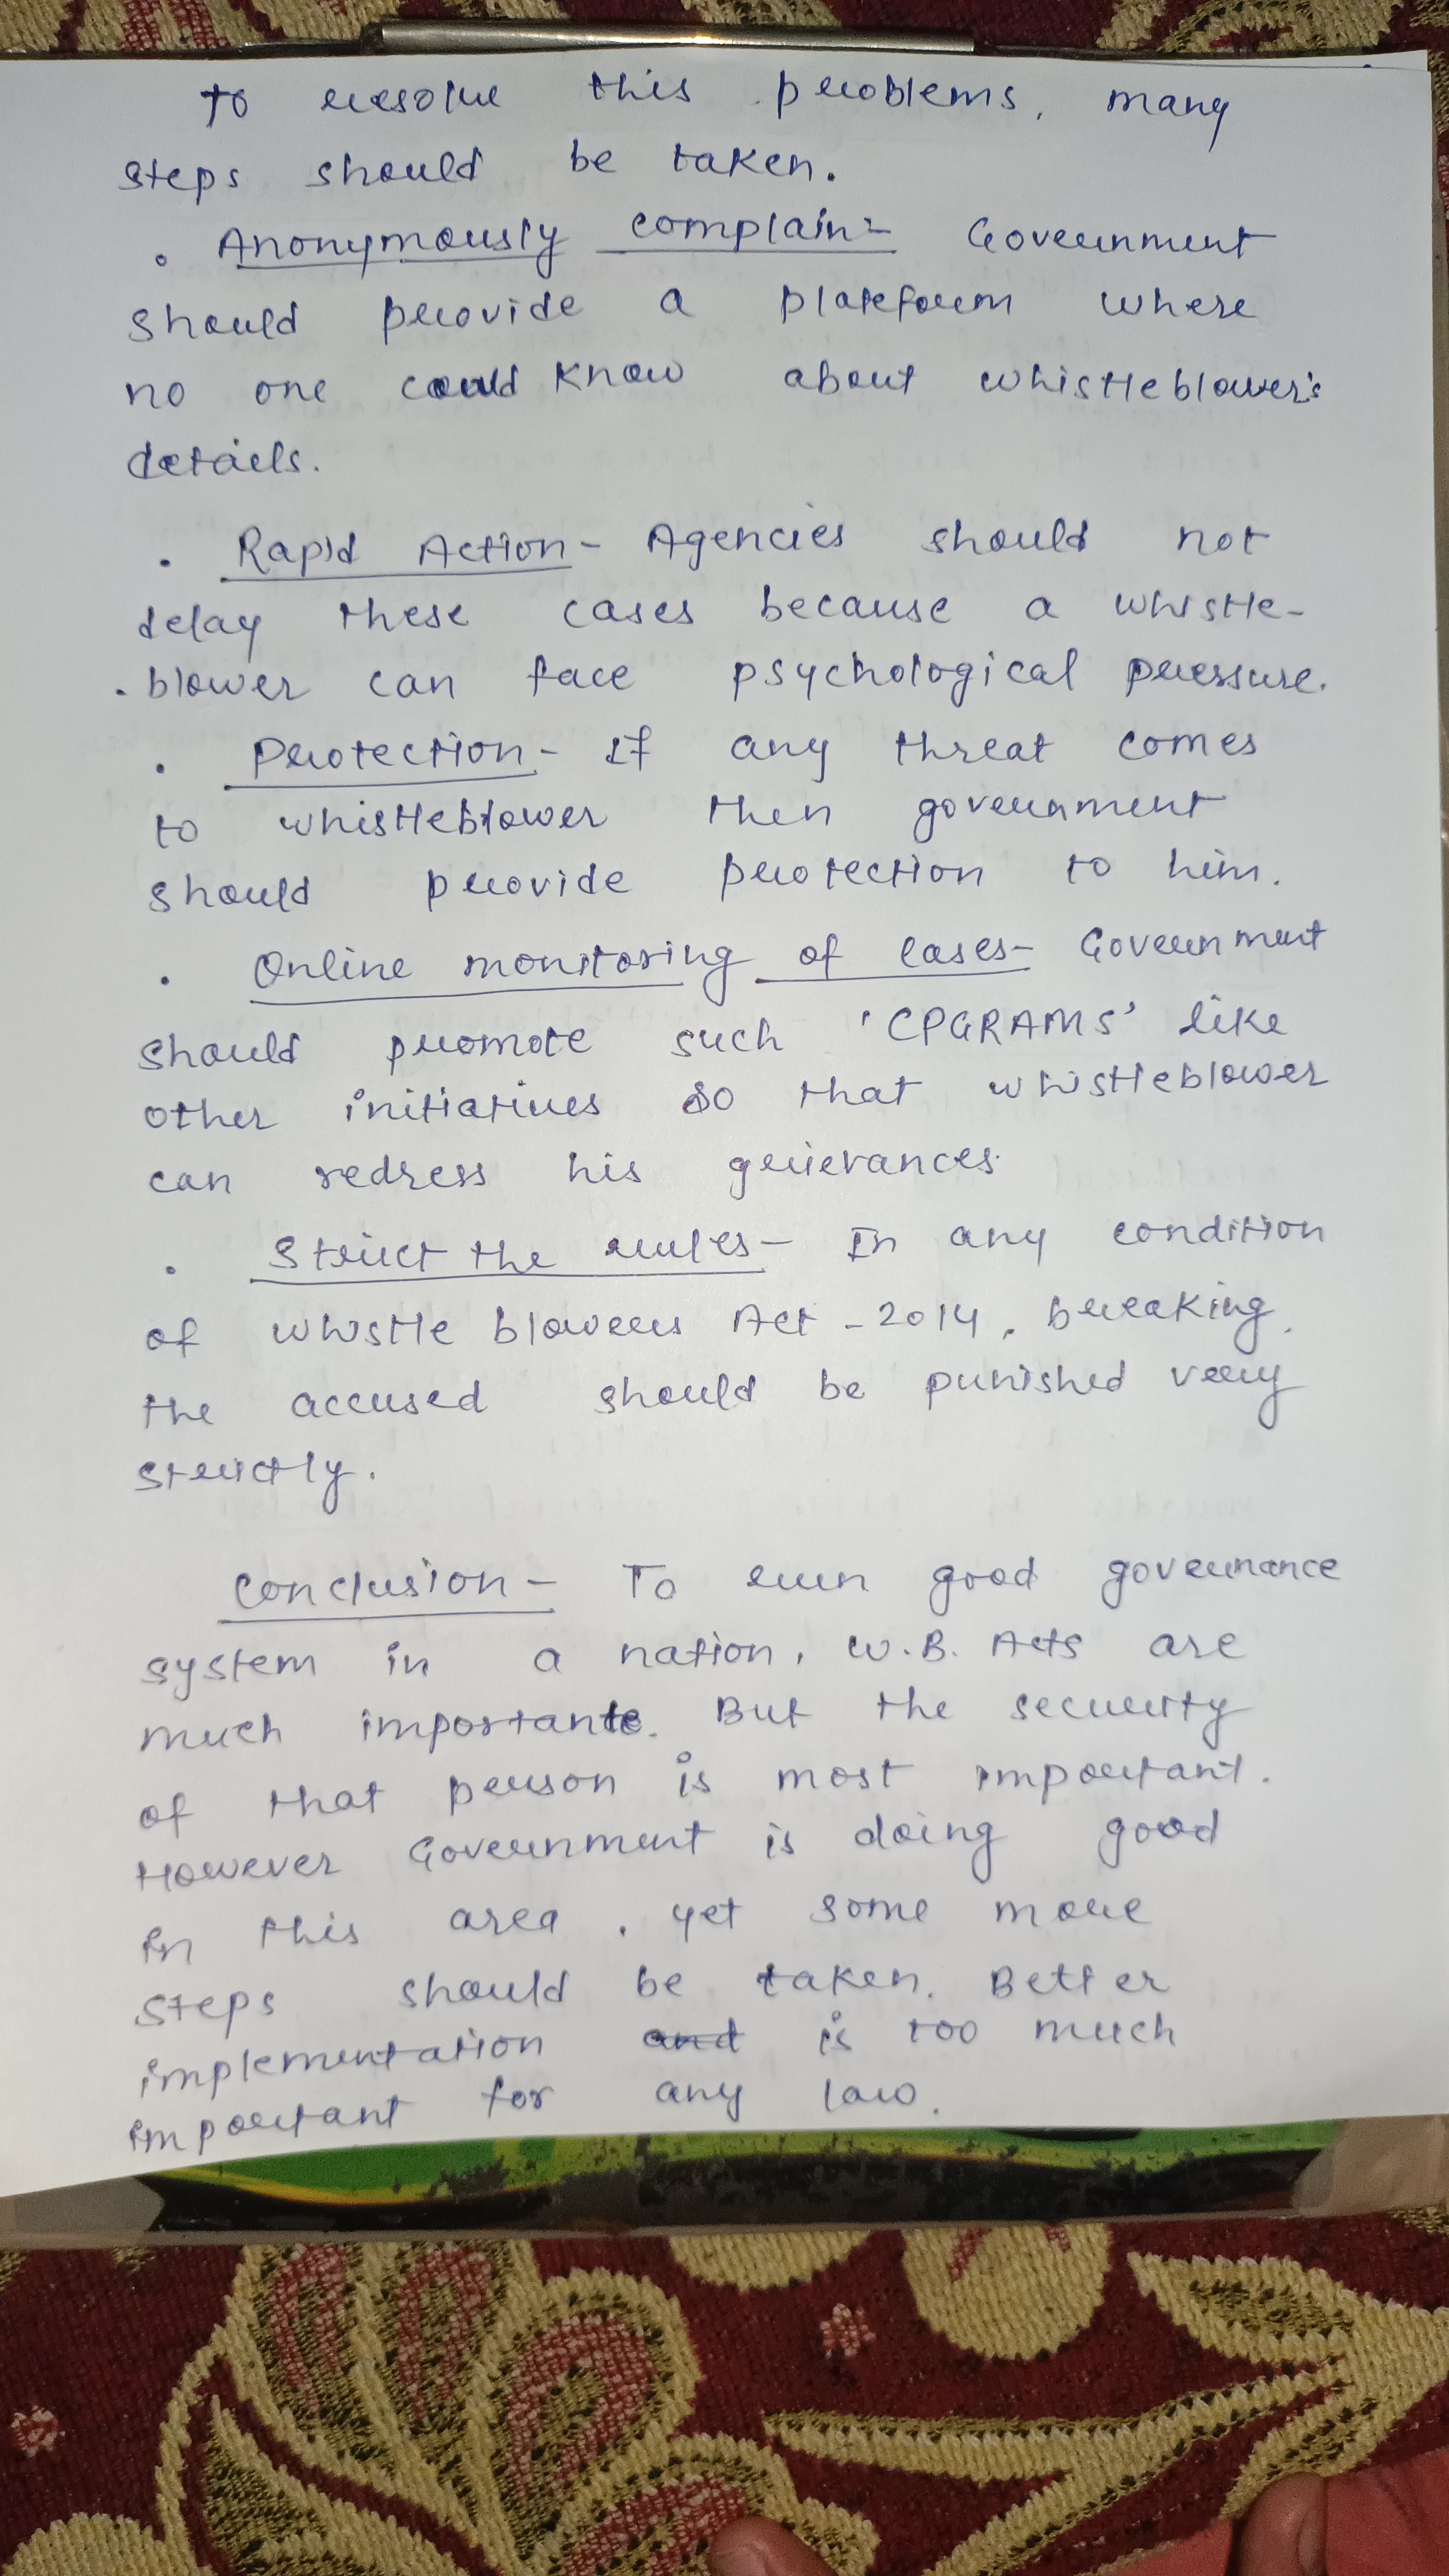 To resolve this problems, many
steps should be taken.
• Anonymously complain- Government
should provide a plateform where
no one could know about whistleblower's
details.
• Rapid Action - Agencies should not
delay these cases because a whistle-
-blower can face psychological pressure.
• Protection - If any threat comes
to whistleblower then government
should provide protection to him.
• Online monitoring of cases- Government
should promote such 'CPGRAMS' like
other initiatives so that whistleblower
can redress his grievances.
• Strict the rules - In any condition
of whistle blowers Act - 2014, breaking
the accused should be punished very
strictly.
Conclusion - To run good governance
system in a nation, W.B. Acts are
much importante. But the security
of that person is most important.
However Government is doing good
in this area, yet some more
steps should be taken. Better
implementation and is too much
important for any law.